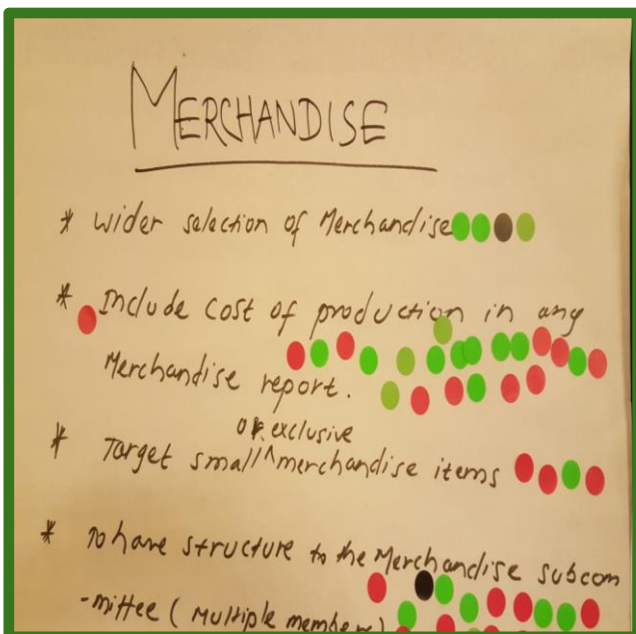 MERCHANDISE
* Wider selection of Merchandise
* Include cost of production in any
Merchandise report.
or exclusive
* Target small ^ merchandise items
* To have structure to the Merchandise subcom
-mittee ( Multiple members)